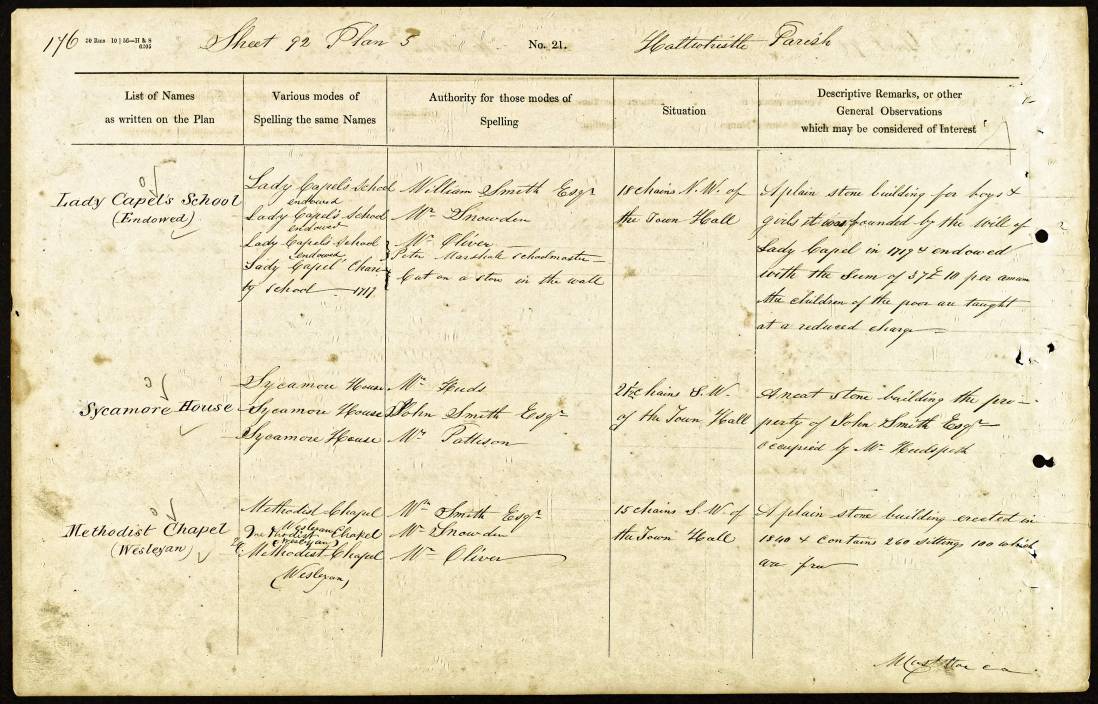 176 Sheet 92 Plan 5 No. 21. Haltwhistle Parish
List of Names
as written on the Plan
Various modes of
Spelling the same Names
Authority for those modes of
Spelling
Situation
Descriptive Remarks, or other
General Observations
which may be considered of Interest
Lady Capel's School
(Endowed)
Lady Capel's School
endowed
Lady Capel's School
endowed
Lady Capel's School
endowed
Lady Capel' Chari
ty School 1719
William Smith Esqr
Mr Snowden
Mr Oliver
Peter Marshall Schoolmaster
Cut on a stone in the wall
18 chains N.W. of
the Town Hall
A plain stone building for boys &
girls it was founded by the will of
Lady Capel in 1719 & endowed
with the Sum of 37£ 10 per annum
the children of the poor are taught
at a reduced charge
Sycamore House
Sycamore House
Sycamore House
Sycamore House
Mr Huds
John Smith Esqr
Mr Pattison
chains S.W.
of the Town Hall
A neat stone building the pro-
perty of John Smith Esqr
occupied by Mr Hudspeth
Methodist Chapel
(Wesleyan)
Methodist Chapel
Wesleyan
Methodist Chapel
(Wesleyan)
Methodist Chapel
(Wesleyan)
Wm Smith Esqr
Mr Snowden
Mr Oliver
15 chains S.W. of
the Town Hall
A plain stone building erected in
1840 & contains 260 sittings 100 which
are free